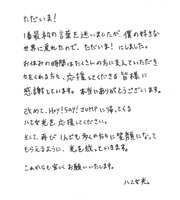 ただいま！
1番最初の言葉を迷いましたが、僕の好きな
世界に戻れたので、ただいま！にしました。
お休みの時間はたくさんの方に支えていただき
力をくれる方々、応援してくださる皆様に
感謝しています。本当にありがとうございます。
改めて、Hey! Say! JUMPに帰ってくる
八乙女光を応援してください。
そして、再び1人でも多くの方々に笑顔になって
もらえるように、光を放っていきます。
これからも宜しくお願いいたします。
八乙女光。